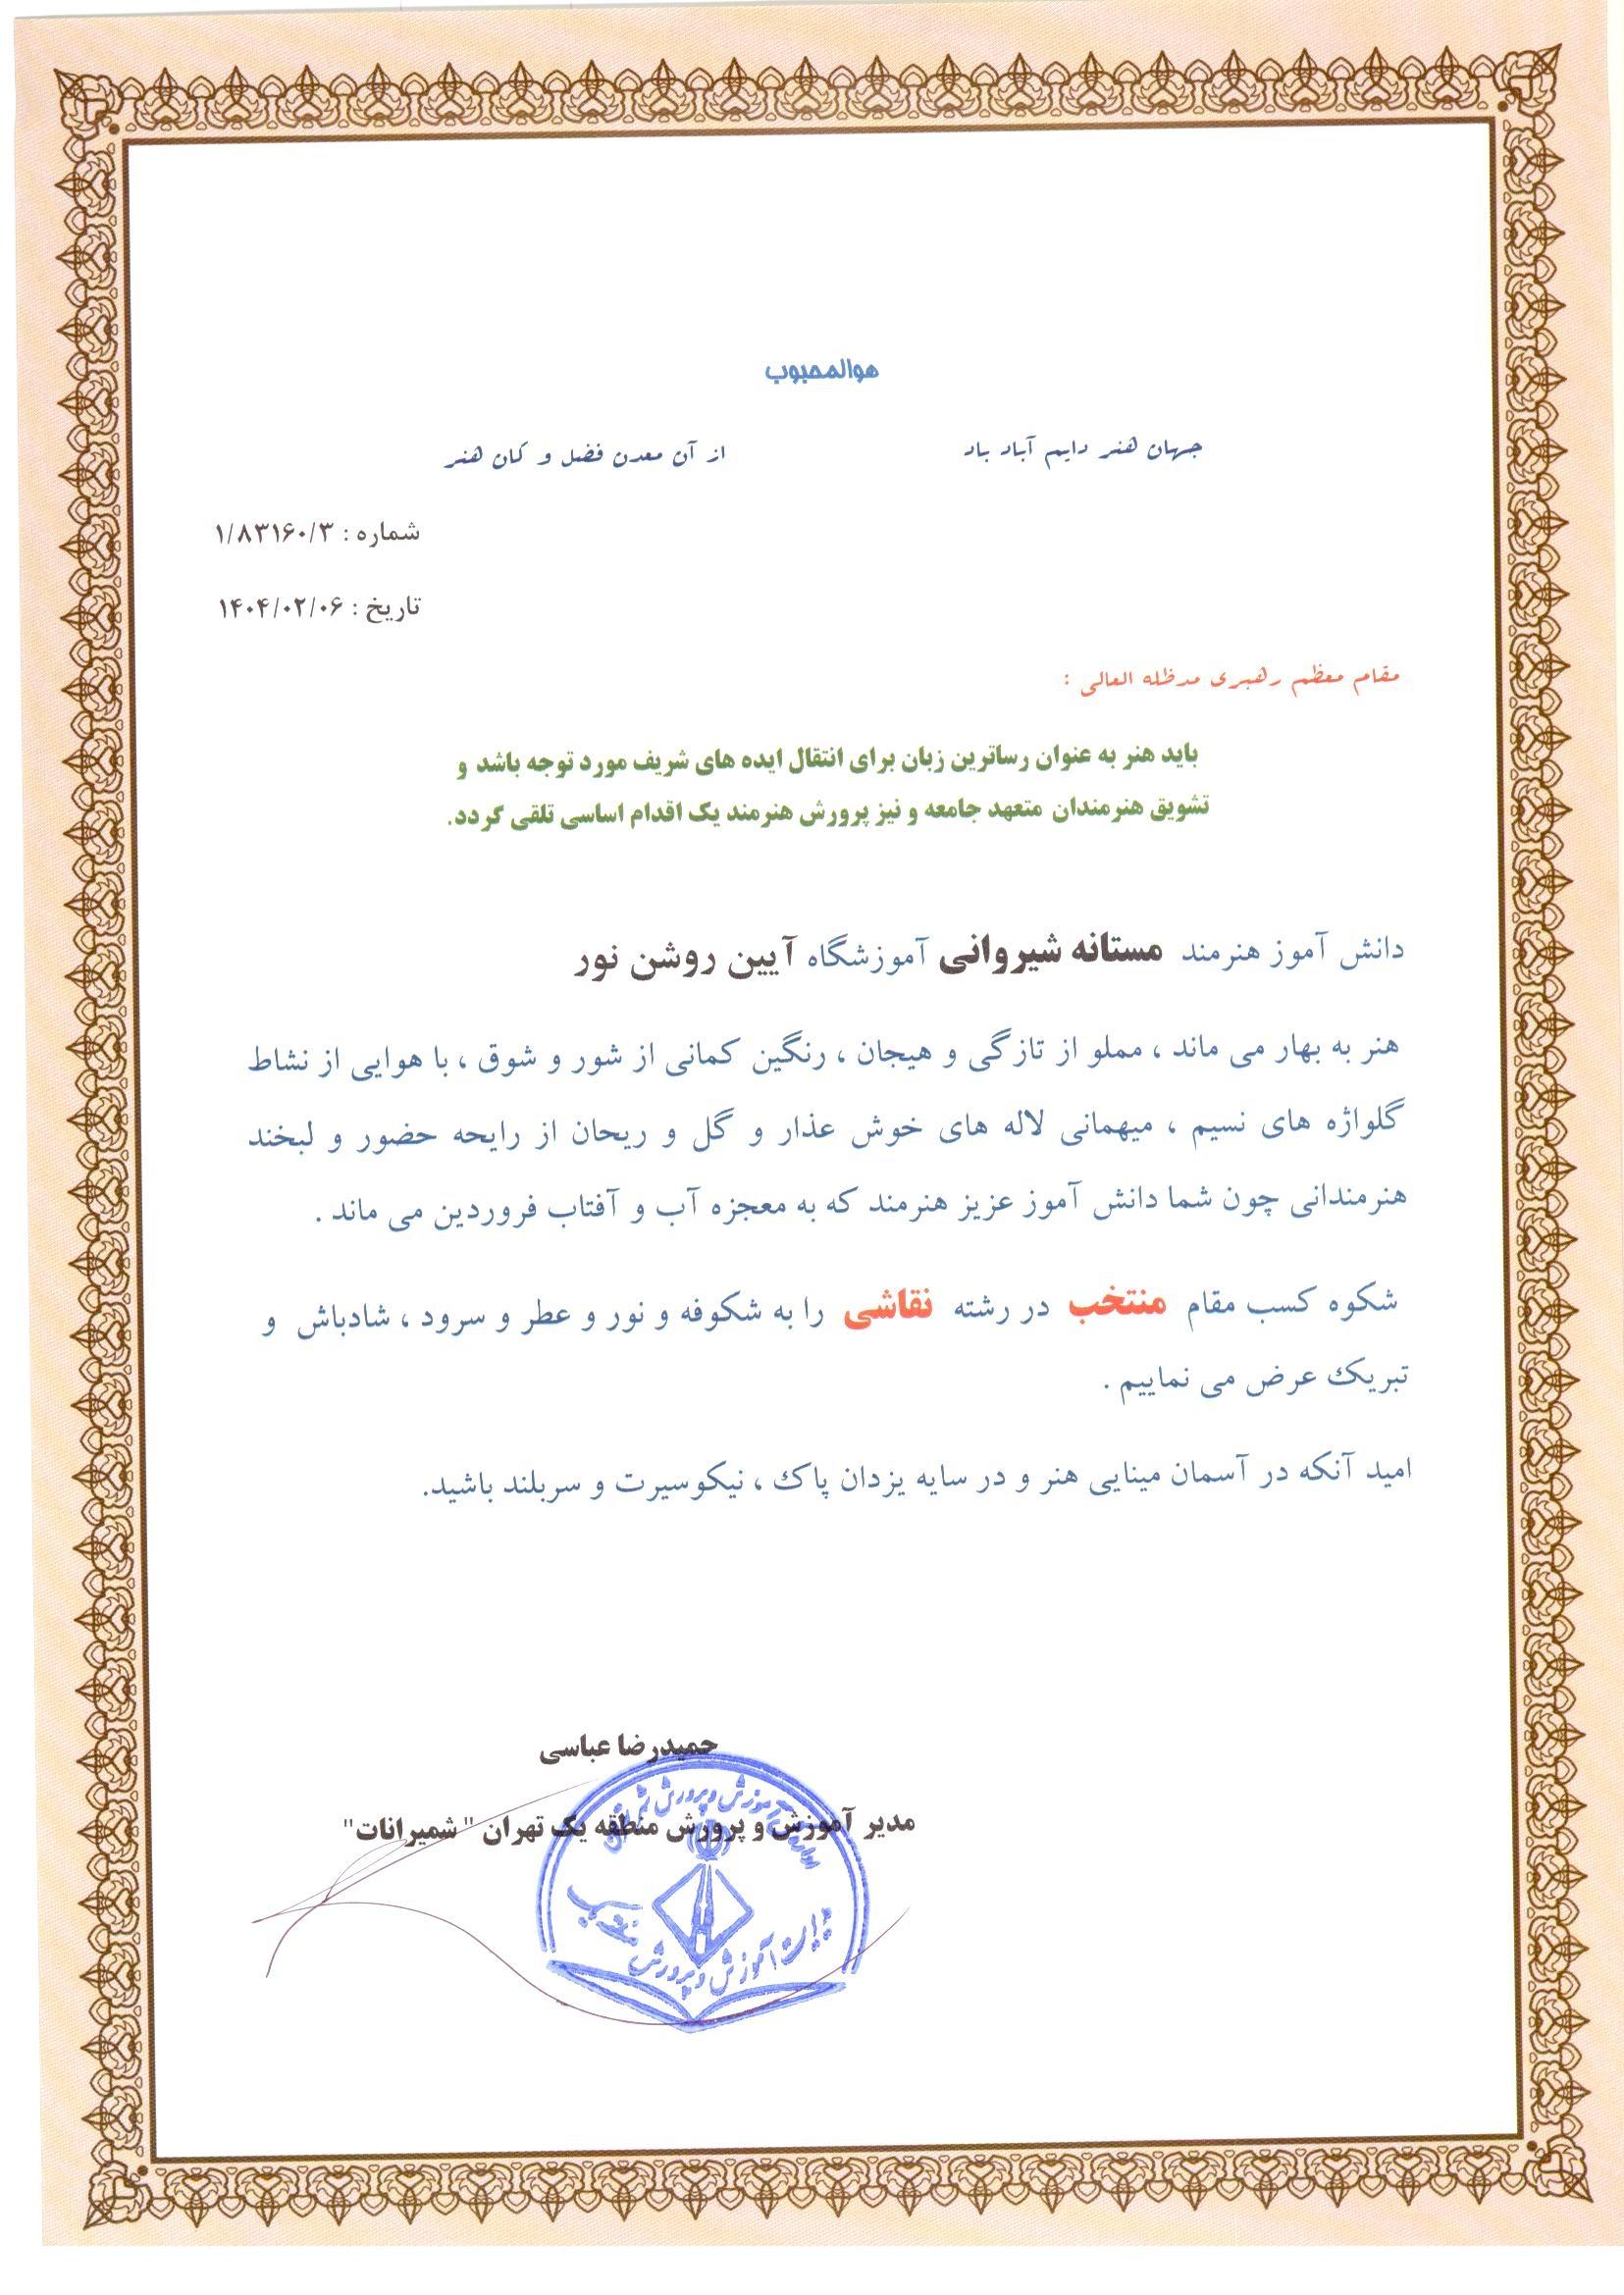 هوالمحبوب
جهان هنر دایم آباد باد از آن معدن فضل و کان هنر
شماره : ۱/۸۳۱۶۰/۳
تاریخ : ۱۴۰۴/۰۲/۰۶
مقام معظم رهبری مدظله العالی :
باید هنر به عنوان رساترین زبان برای انتقال ایده های شریف مورد توجه باشد و
تشویق هنرمندان متعهد جامعه و نیز پرورش هنرمند یک اقدام اساسی تلقی گردد.
دانش آموز هنرمند مستانه شیروانی آموزشگاه آیین روشن نور
هنر به بهار می ماند ، مملو از تازگی و هیجان ، رنگین کمانی از شور و شوق ، با هوایی از نشاط
گلواژه های نسیم ، میهمانی لاله های خوش عذار و گل و ریحان از رایحه حضور و لبخند
هنرمندانی چون شما دانش آموز عزیز هنرمند که به معجزه آب و آفتاب فروردین می ماند .
شکوه کسب مقام منتخب در رشته نقاشی را به شکوفه و نور و عطر و سرود ، شادباش و
تبریک عرض می نماییم .
امید آنکه در آسمان مینایی هنر و در سایه یزدان پاک ، نیکوسیرت و سربلند باشید.
حمیدرضا عباسی
مدیر آموزش و پرورش منطقه یک تهران " شمیرانات"
وزارت آموزش و پرورش